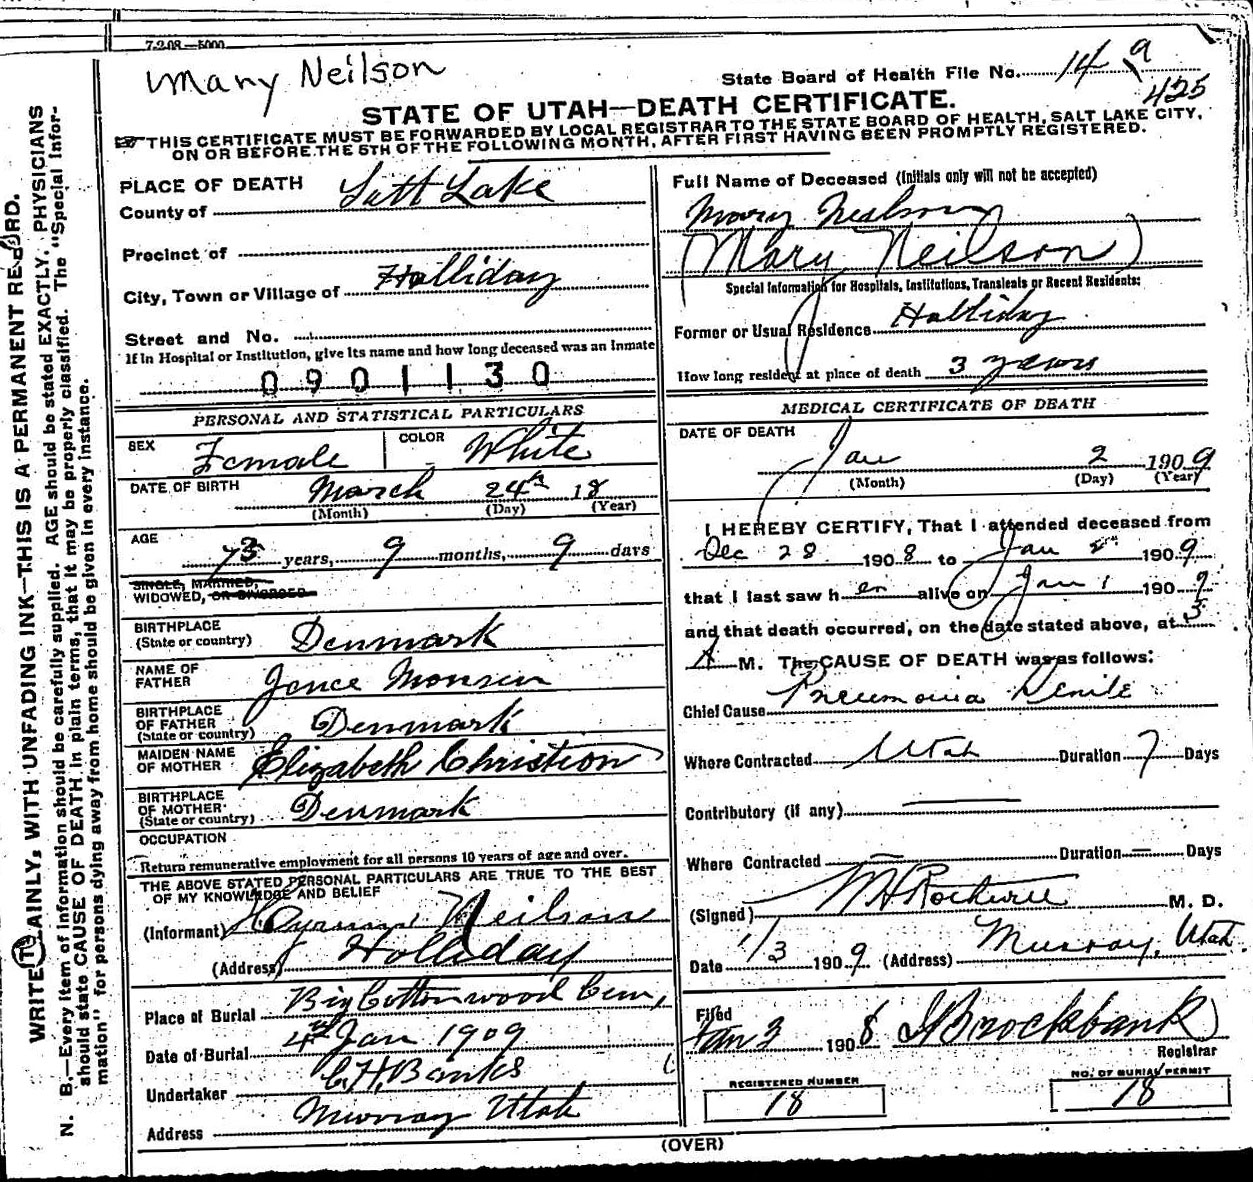 7-2-08—5000
Mary Neilson
State Board of Health File No. 14 9
425
STATE OF UTAH—DEATH CERTIFICATE.
THIS CERTIFICATE MUST BE FORWARDED BY LOCAL REGISTRAR TO THE STATE BOARD OF HEALTH, SALT LAKE CITY,
ON OR BEFORE THE 5TH OF THE FOLLOWING MONTH, AFTER FIRST HAVING BEEN PROMPTLY REGISTERED.
WRITE PLAINLY, WITH UNFADING INK—THIS IS A PERMANENT RECORD.
N. B.—Every item of information should be carefully supplied. AGE should be stated EXACTLY. PHYSICIANS
should state CAUSE OF DEATH in plain terms, that it may be properly classified. The "Special Infor-
mation" for persons dying away from home should be given in every instance.
PLACE OF DEATH
County of Salt Lake
Precinct of
City, Town or Village of Holliday
Street and No.
If in Hospital or Institution, give its name and how long deceased was an Inmate
0901130
PERSONAL AND STATISTICAL PARTICULARS
SEX Female COLOR White
DATE OF BIRTH March 24th 18
(Month) (Day) (Year)
AGE 73 years, 9 months, 9 days
SINGLE, MARRIED,
WIDOWED, OR DIVORCED
BIRTHPLACE
(State or country) Denmark
NAME OF
FATHER Monsen
BIRTHPLACE
OF FATHER
(State or country) Denmark
MAIDEN NAME
OF MOTHER Elizabeth Christion
BIRTHPLACE
OF MOTHER
(State or country) Denmark
OCCUPATION
Return remunerative employment for all persons 10 years of age and over.
THE ABOVE STATED PERSONAL PARTICULARS ARE TRUE TO THE BEST
OF MY KNOWLEDGE AND BELIEF
(Informant) Neilson
(Address) Holliday
Place of Burial Big Cottonwood Cem,
Date of Burial 4th Jan 1909
Undertaker C.H. Banks
Address Murray Utah
Full Name of Deceased (Initials only will not be accepted)
Mary
(Mary Neilson)
Special Information for Hospitals, Institutions, Transients or Recent Residents:
Former or Usual Residence Holliday
How long resident at place of death 3 years
MEDICAL CERTIFICATE OF DEATH
DATE OF DEATH
Jan 2 1909
(Month) (Day) (Year)
I HEREBY CERTIFY, That I attended deceased from
Dec 28 1908 to Jan 1909
that I last saw her alive on Jan 1 1909
and that death occurred, on the date stated above, at 3
A M. The CAUSE OF DEATH was as follows:
Chief Cause Pneumonia Senile
Where Contracted Utah Duration 7 Days
Contributory (if any) —
Where Contracted — Duration — Days
(Signed) Rothwell M. D.
Date 1/3 1909 (Address) Murray, Utah.
Filed
Jan 3 1908 Brockbank
Registrar
REGISTERED NUMBER
18
NO. OF BURIAL PERMIT
18
(OVER)